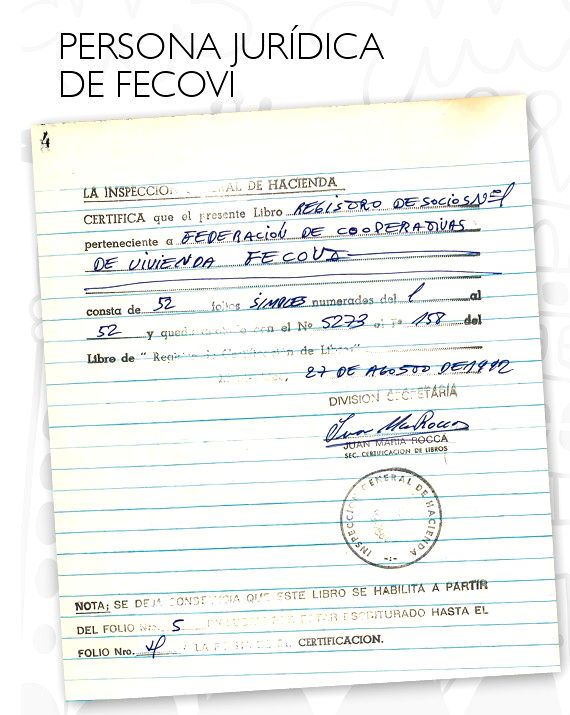 PERSONA JURÍDICA
DE FECOVI
4
LA INSPECCION GENERAL DE HACIENDA
CERTIFICA que el presente Libro REGISTRO DE SOCIOS Nº 1
perteneciente a FEDERACION DE COOPERATIVAS
DE VIVIENDA FECOVI
consta de 52 folios SIMPLES numerados del 1 al
52 y queda con el Nº 5273 al Fº 158 del
Libro de " Registro de Certificación de Libros"
27 DE AGOSTO DE 1992
DIVISION SECRETARIA
Juan M. Rocca
JUAN MARIA ROCCA
SEC. CERTIFICACION DE LIBROS
INSPECCION GENERAL DE HACIENDA
NOTA; SE DEJA CONSTANCIA QUE ESTE LIBRO SE HABILITA A PARTIR
DEL FOLIO Nro. 5 ESTAR ESCRITURADO HASTA EL
FOLIO Nro. 4 A LA FECHA DE CERTIFICACION.